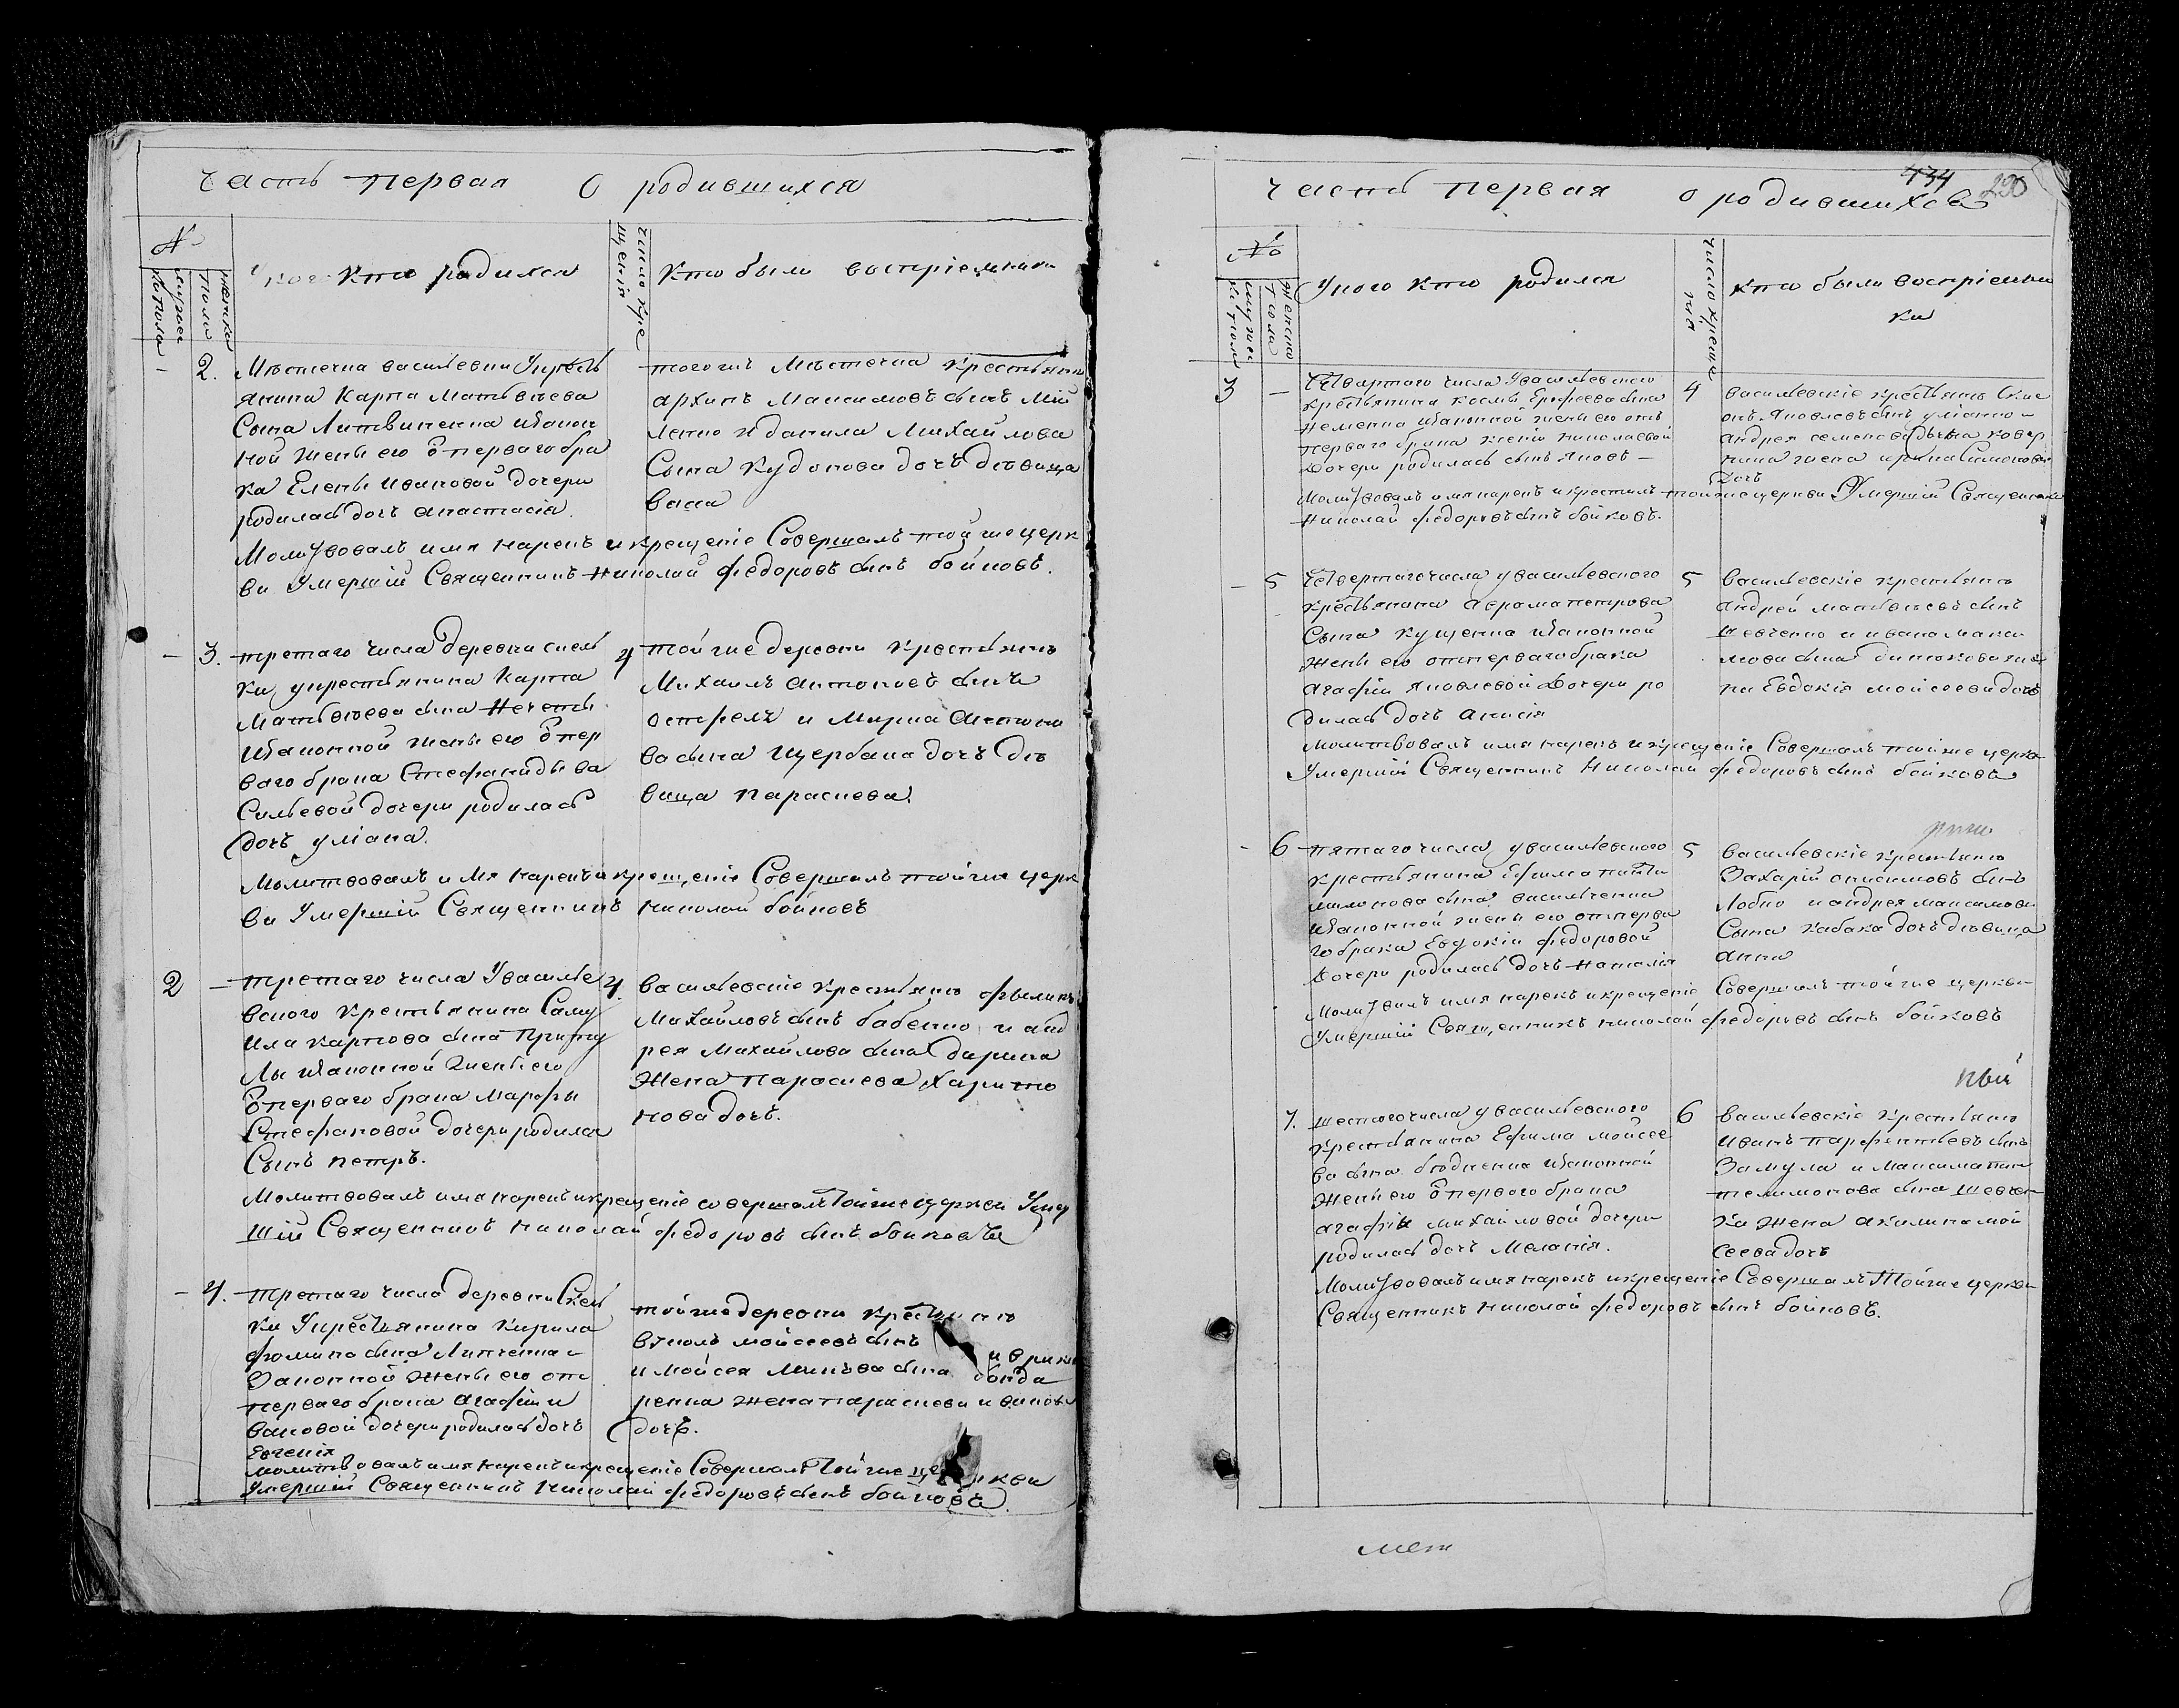 часть первая О родившихся
№
мужеска пола
женска пола
У кого кто родился
число крещенія
кто были воспріемники
- 2.
Мѣстечка василевки Укресть
янина Карпа Матвѣева
Сына Литвиненка изакон
ной жены его ѿ перваго бра
ка Елены Ивановой дочери
родилась дочъ анастасія.
тогожъ Мѣстечка крестьяне
архипъ Максимовъ сынъ
ленко и данила Михайлова
Сына дочъ дѣвица
васа
Молитвовалъ имя нарекъ и крещеніе Совершалъ той же церк
ви Умершій Священникъ Николай федоровъ сынъ бойковъ.
- 3.
третаго числа деревни скель
ки укрестьянина Карпа
Матвѣева сына
Изаконной жены его ѿ пер
ваго брака Стефаниды ва
сильевой дочери родилась
дочъ уліана.
4
тойже деревни крестьяне
Михаилъ антоновъ сынъ
и Марка Антоно
ва сына Щербака дочъ дѣ
вица параскева
Молитвовалъ имя нарекъ и крещеніе Совершалъ тойже церк
ви Умершій Священникъ Николай бойковъ
2 -
третаго числа Увасилье
вского крестьянина Саму
ила карпова сына
лы изаконной жены его
ѿ перваго брака Марфы
Стефановой дочери родился
Сынъ петръ.
4.
васильевские крестьяне
Михайловъ сынъ бабенко и анд
рея Михайлова сына
Жена параскева Харито
нова дочъ.
Молитвовалъ имя нарекъ и крещеніе совершалъ Тойже церкви Умер
шій Священникъ Николай федоровъ сынъ бойковъ
- 4.
третаго числа деревни Скель
ки Укрестьянина Кирила
фомина сына Липченка и
Законной жены его от
перваго брака агафіи и
вановой дочери родилась дочъ
Евгенія
тойже деревни крестьяне
мойсеевъ сынъ
и мойсея сына бонда
ренка жена параскева
дочъ.
Молитвовалъ имя нарекъ и крещеніе Совершалъ Тойже церкви
Умершій Священникъ Николай федоровъ сынъ бойковъ.
434 290
часть первая о родившихся
№
мужеска пола
женска пола
Укого кто родился
число крещенія
кто были воспріемни
ки
3 -
Четвартого числа Увасильевского
крестьянина космы Ерофеева сына
изаконной жены его отъ
перваго брака ксеніи николаевой
дочери родилась сынъ яковъ -
4
васильевскіе крестьяне
Яковлевъ сынъ
андрея семенова сына
жена ирина Симонова
дочъ
Молитвовалъ имя нарекъ и крестилъ тойже церкви Умершій Священникъ
Николай федоровъ сынъ бойковъ.
- 5
Четвертаго числа увасильевского
крестьянина петрова
Сына Куценка изаконной
жены его отперваго брака
агафіи яковлевой дочери ро
дилась дочъ анисія
5
васильевскіе крестьяне
андрей матвѣевъ сынъ
шевченко и ивана макси
мова сына
Евдокія мойсеева дочъ
Молитвовалъ имя нарекъ и крещеніе Совершалъ тойже церкви
Умершій Священникъ Николай федоровъ сынъ бойковъ
- 6
пятаго числа увасильевского
крестьянина Ефима панте
лимонова сына василченка
изаконной жены его отперва
го брака Евдокіи федоровой
дочери родилась дочъ наталія
5
васильевскіе крестьяне
Захарій онисимовъ сынъ
Лобко и андрея максимова
Сына Кабака дочъ дѣвица
анна
Молитвовалъ имя нарекъ и крещеніе Совершалъ тойже церкви
Умершій Священникъ николай федоровъ сынъ бойковъ
7.
шестого числа увасильевского
крестьянина Ефима мойсее
ва сына изаконной
жены его ѿ перваго брака
агафіи михайловой дочери
родилась дочъ Меланія.
6
васильевскіе крестьяне
иванъ парфентьевъ сынъ
Замула и Максима пан
телимонова сына шевчен
ка жена акилина мой
сеева дочъ
Молитвовалъ имя нарекъ и крещеніе Совершалъ Тойже церкви
Священникъ Николай федоровъ сынъ бойковъ.